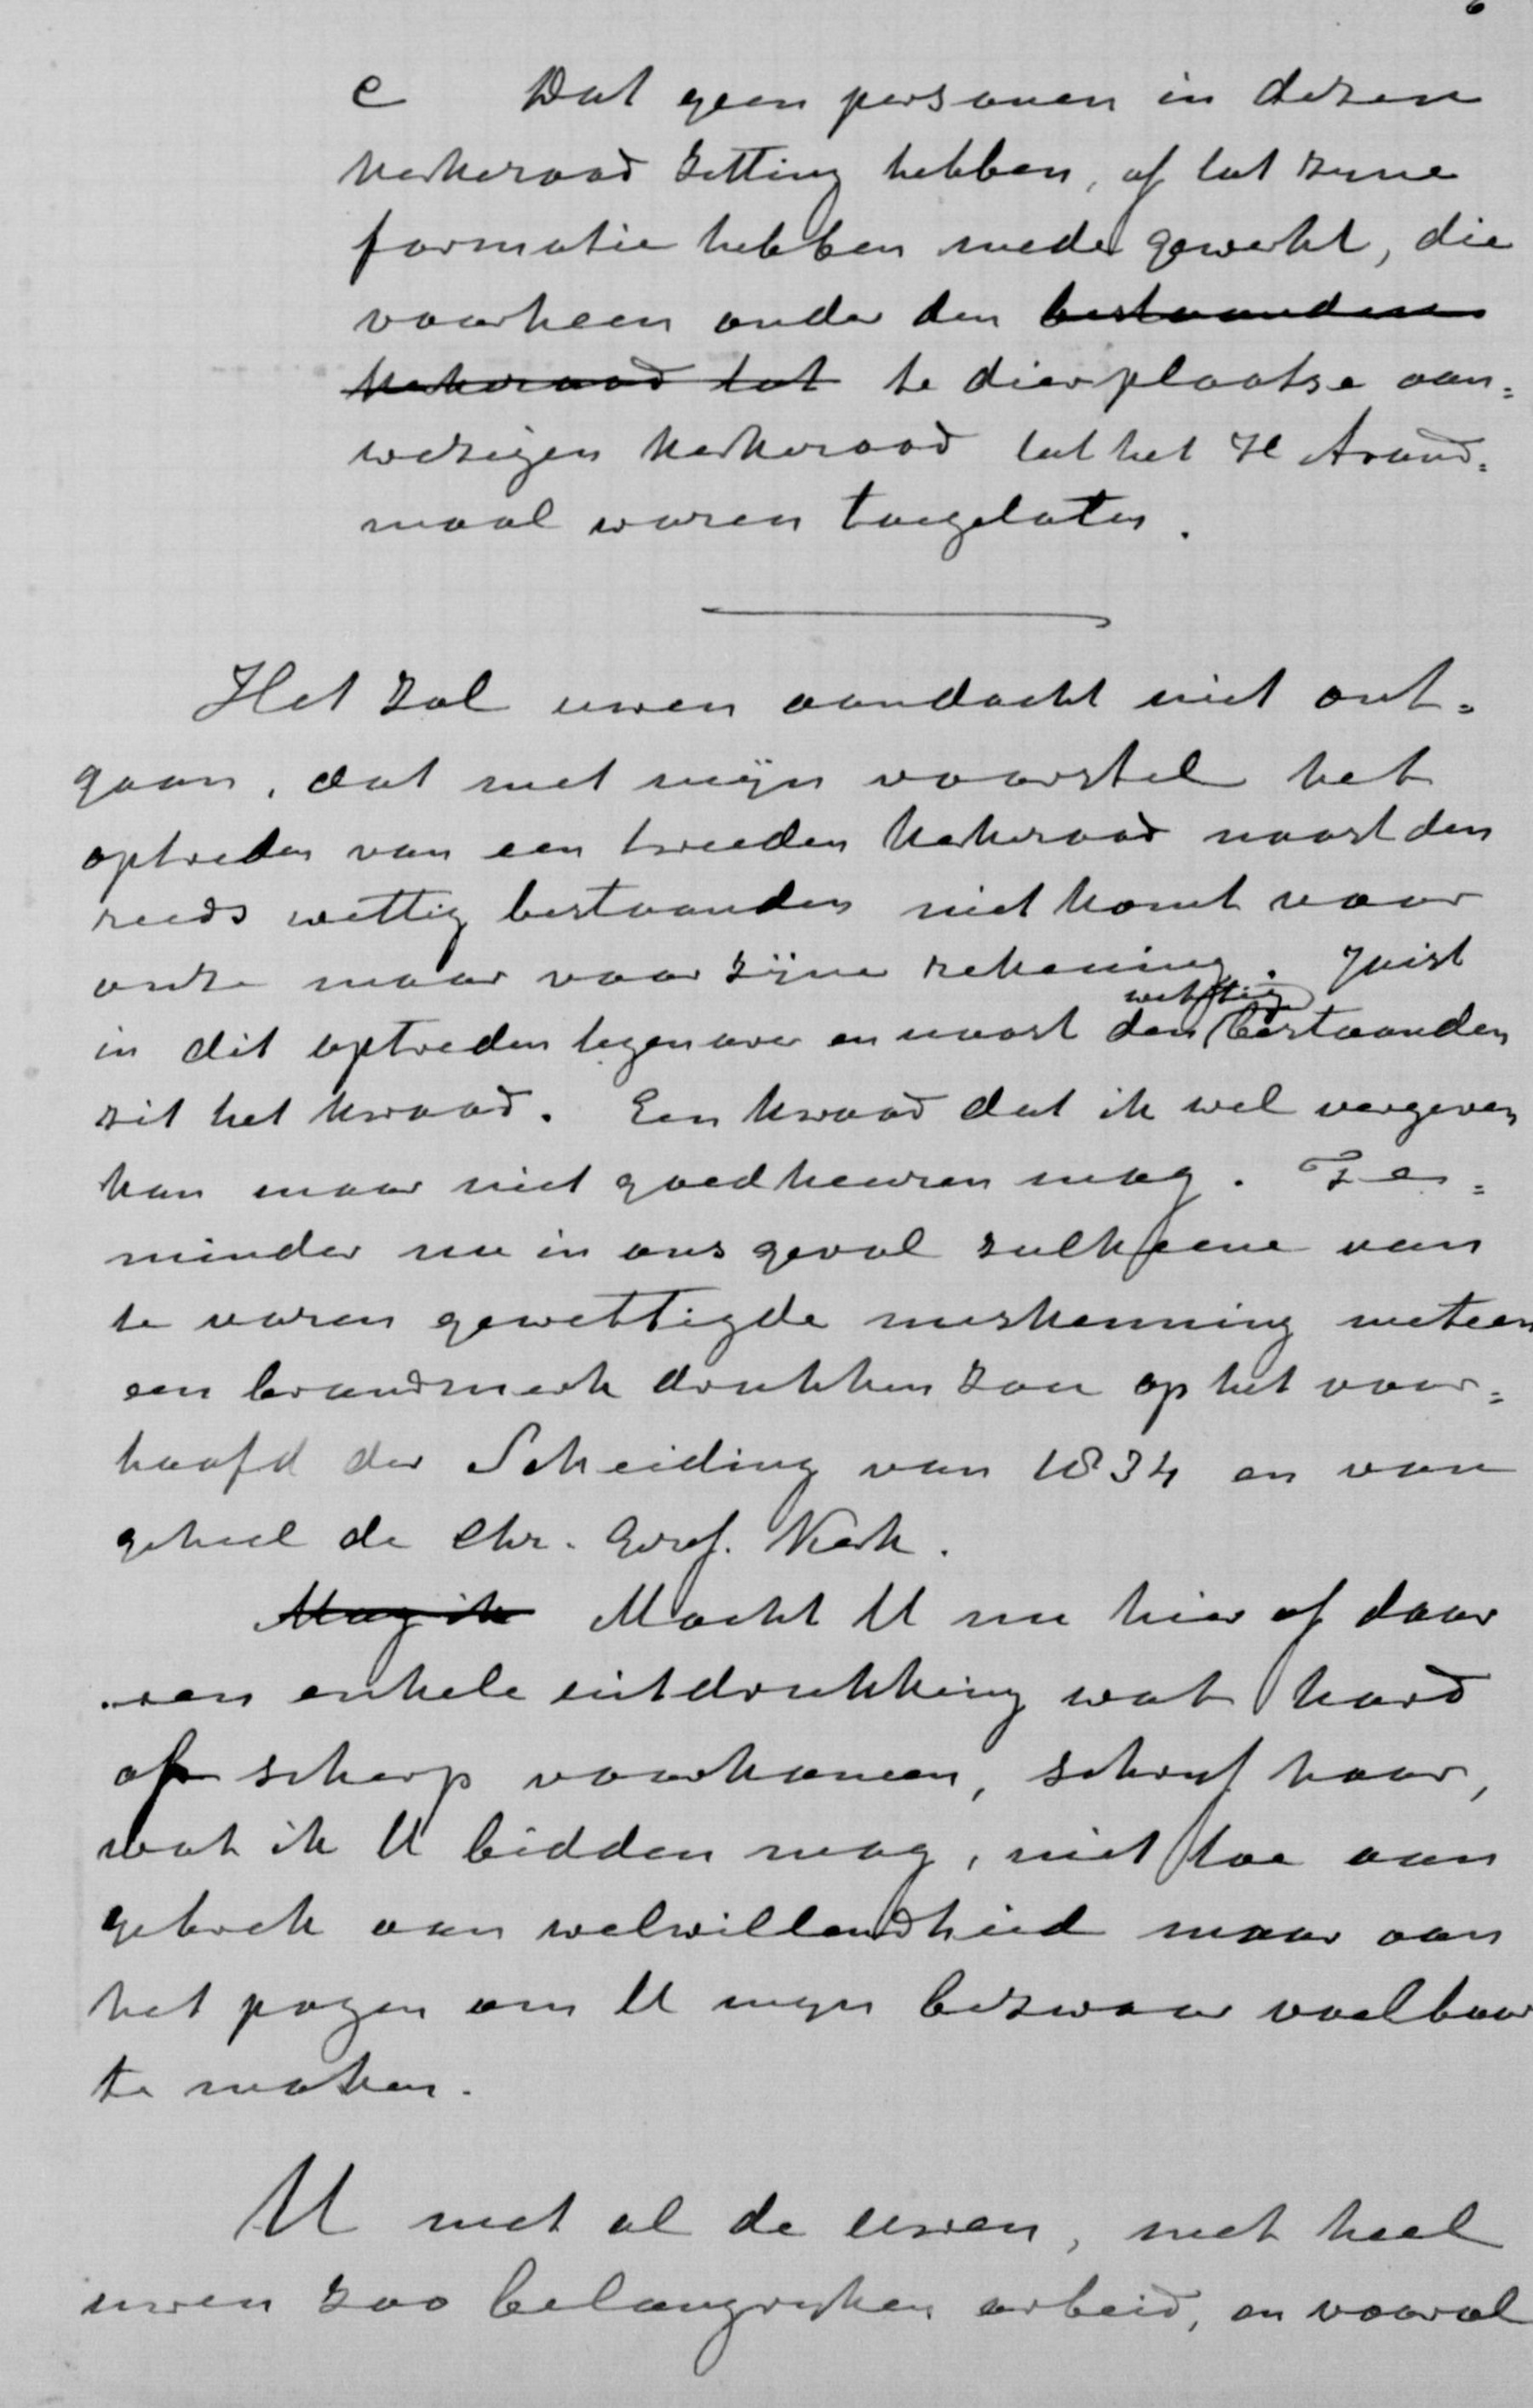 6
c Dat geen personen in dezen
kerkeraad zitting hebben, of tot zijne
formatie hebben mede gewerkt, die
voorheen onder den bestaanden
kerkeraad tot te dier plaatse aan=
wezigen kerkeraad tot het H Avond=
maal waren toegelaten.
Het zal uwen aandacht niet ont=
gaan, dat met mijn voorstel het
optreden van een tweeden kerkeraad naast den
reeds wettig bestaanden niet komt voor
onze maar voor zijne rekening. Juist
wettig
in dit optreden tegenover en naast den bestaanden
zit het kwaad. Een kwaad dat ik wel vergeven
kan maar niet goedkeuren mag. Te=
minder nu in ons geval zulk eene van
te voren gewettigde miskenning meteen
een brandmerk drukken zou op het voor=
hoofd der Scheiding van 1834 en van
geheel de Chr. Geref. Kerk.
Mag ik Mocht U nu hier of daar
een enkele uitdrukking wat hard
of scherp voorkomen, schrijf haar,
wat ik U bidden mag, niet toe aan
gebrek aan welwillendheid maar aan
het pogen om U mijn bezwaar voelbaar
te maken.
U met al de uwen, met heel
uwen zoo belangrijken arbeid, en vooral